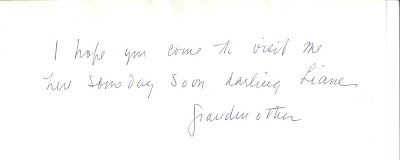 I hope you come to visit me
here someday soon darling Liane
Grandmother